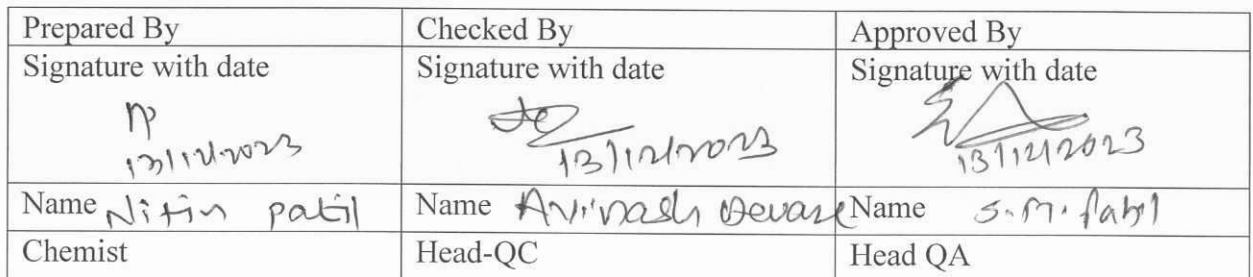 Prepared By Checked By Approved By
Signature with date Signature with date Signature with date
13/12/2023 13/12/2023 13/12/2023
Name Nitin patil Name Avinash Devare Name S.M. Patil
Chemist Head-QC Head QA